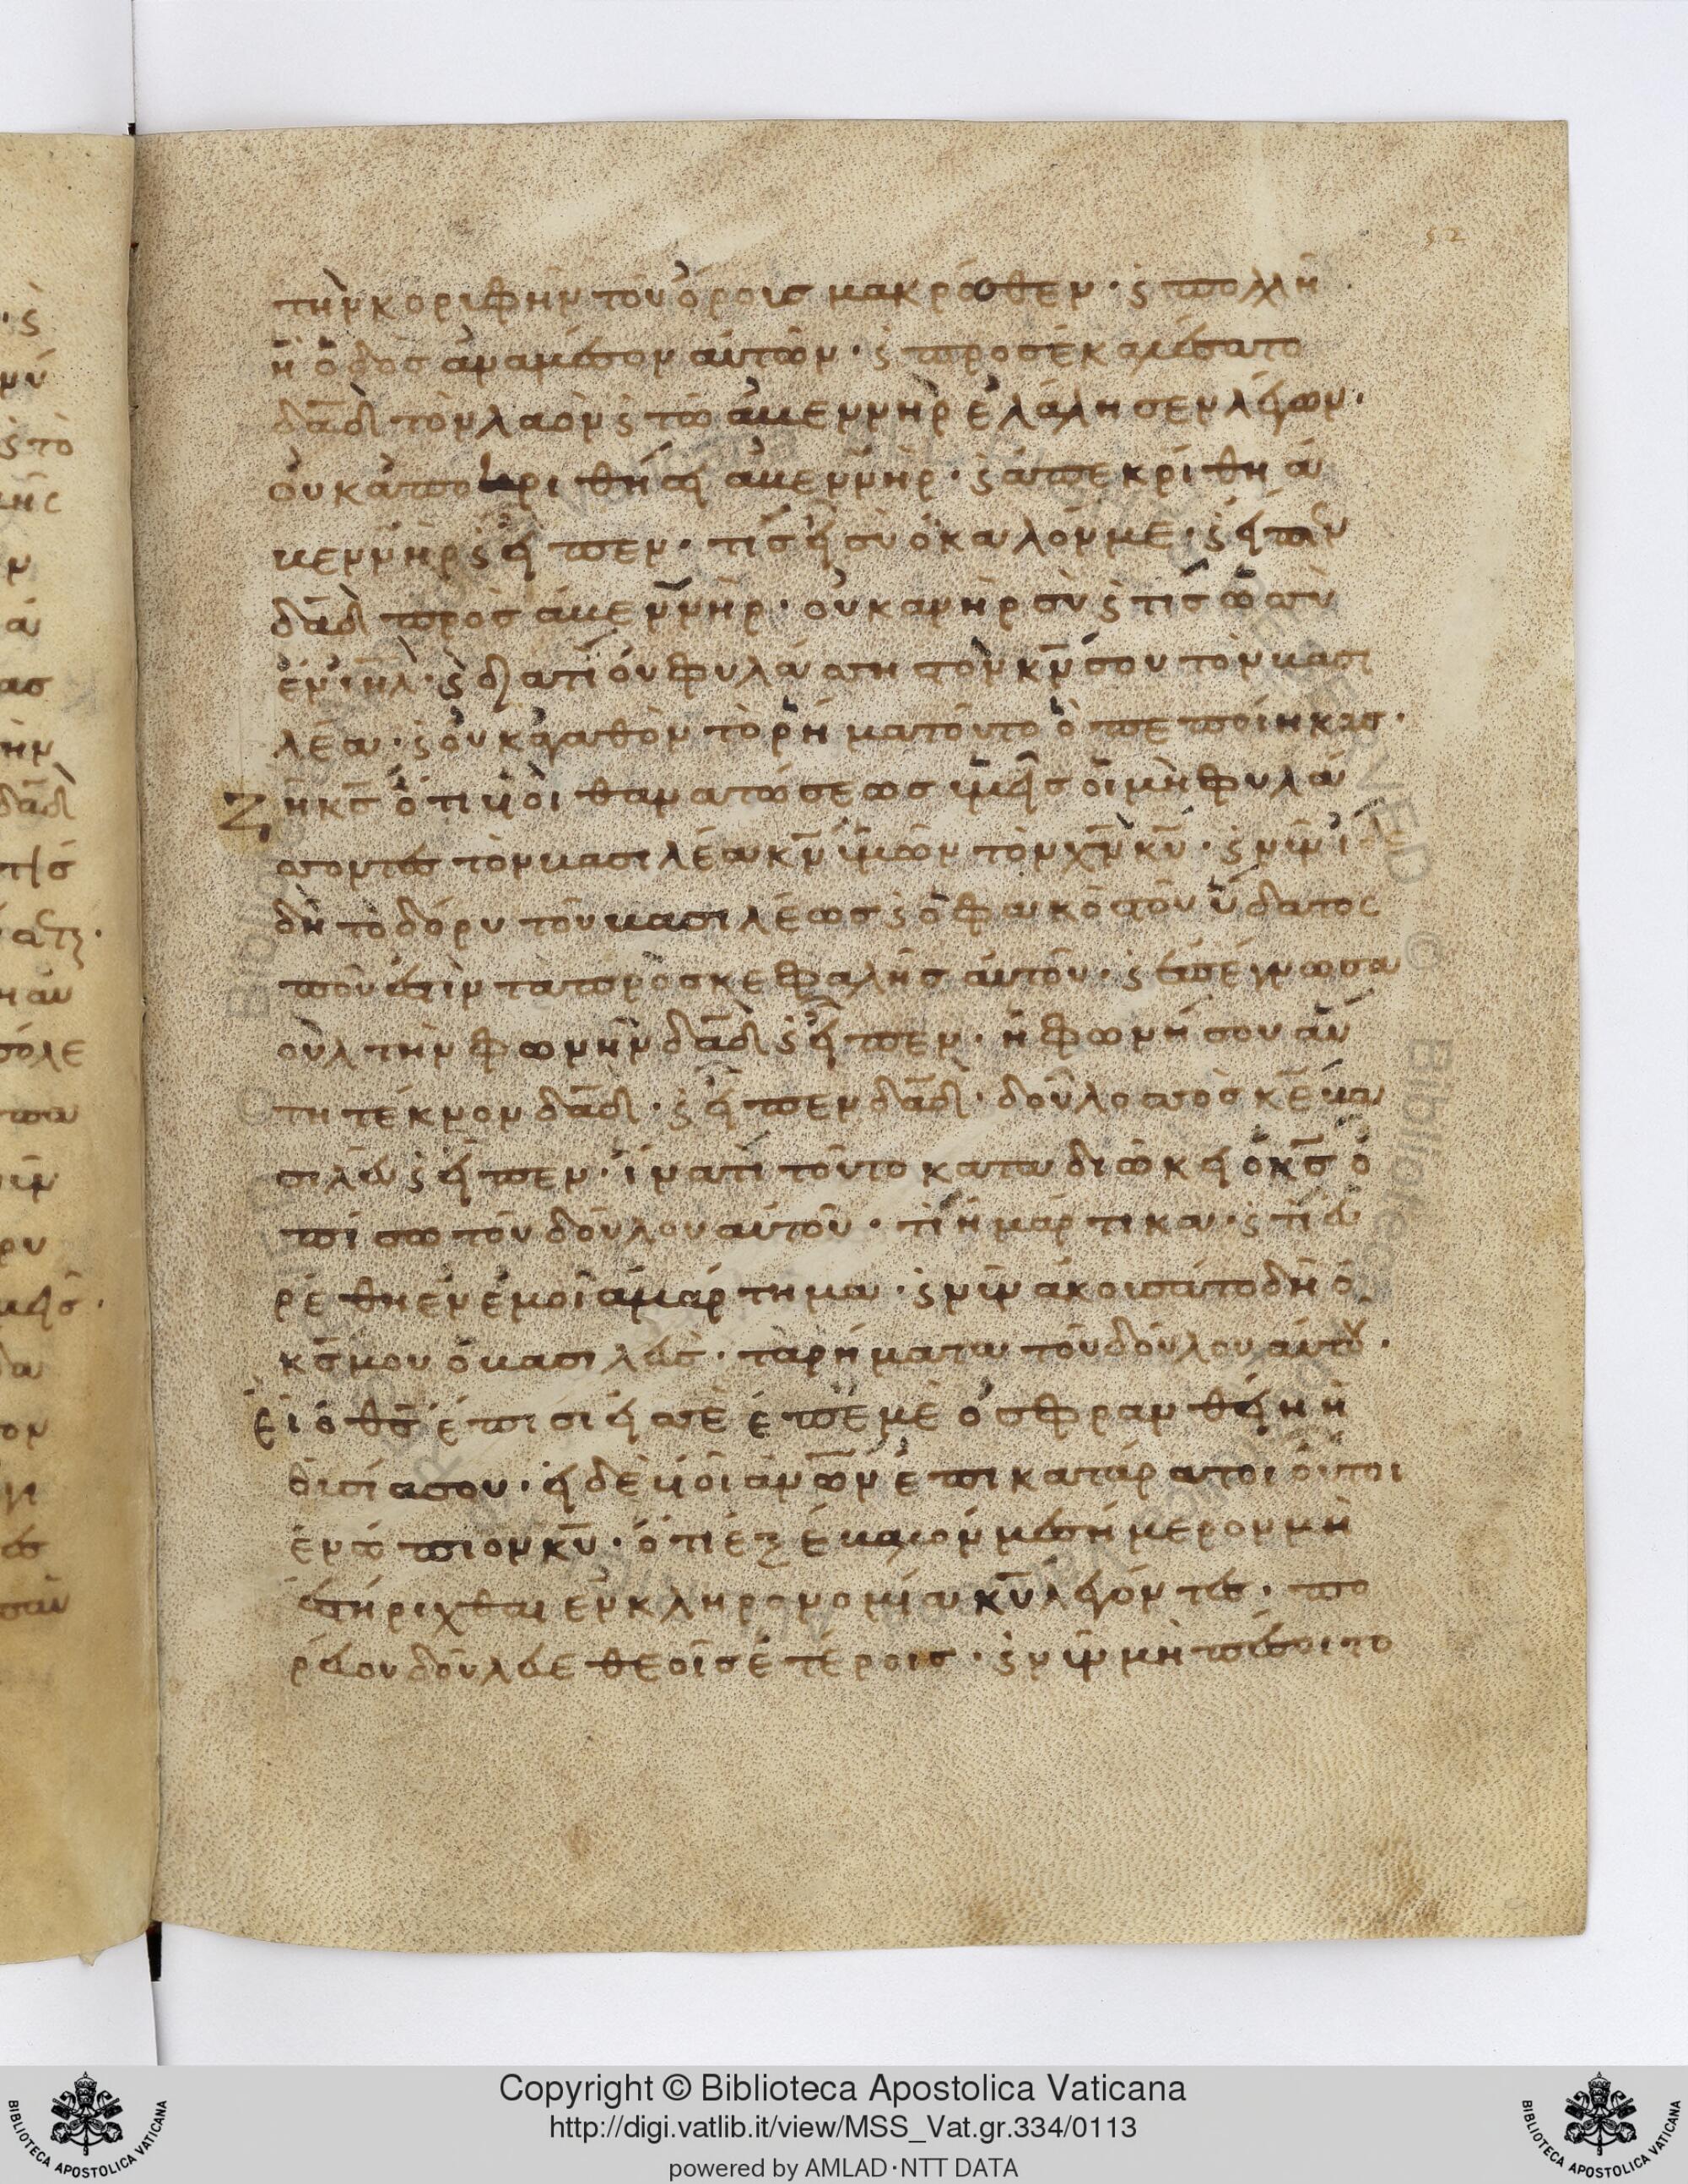 52
τὴν κοριφὴν τοῦ ὄροισ μακρόθεν · ϛ πολλὴ
ἡ ὁδὸσ ἀναμέσον αὐτῶν · ϛ προσεκαλέσατο
δᾱδ τὸν λαὸν ϛ τῶ ἀβεννὴρ ἐλάλησεν λέγων ·
οὐκ ἀποκριθήση ἀβεννὴρ · ϛ ἀπεκρίθη ἀ
βεννὴρ ϛ εἶπεν · τίσ εἶ σὺ ὁ καλόν με · ϛ εἶπεν
δᾱδ πρὸσ ἀβεννὴρ · οὐκ ἀνὴρ σὺ ϛ τίσ ὡσ σὺ
ἐν ιη̄λ · ϛ διατί οὐ φυλάσση τὸν κν̄ σου τὸν βασι
λέα · ϛ οὐκ ἀγαθὸν τὸ ρῆμα τοῦτο ὃ πεποίηκασ ·
Ζῆ κσ̄ ὅτι υἱοὶ θανατώσεωσ ὑμεῖσ οἱ μὴ φυλά
σσοντεσ τὸν βασιλέα κν̄ ὑμῶν τὸν χν̄ κῡ · ϛ νῦν ἴδε
δὴ τὸ δόρυ τοῦ βασιλέωσ ϛ ὁ φακὸσ τοῦ ὕδατος
ποῦ ἐστὶν τὰ πρὸσ κεφαλῆσ αὐτοῦ · ϛ ἐπέγνω σα
οὺλ τὴν φωνὴν δᾱδ ϛ εἶπεν · ἡ φωνή σου αὕ
τη τέκνον δᾱδ · ϛ εἶπεν δᾱδ · δοῦλοσ σὸσ κε̄ βα
σιλεῦ ϛ εἶπεν · ἱνατί τοῦτο καταδιώκει ὁ κσ̄ ὀ
πίσω τοῦ δούλου αὐτοῦ · τί ἡμάρτικα · ϛ τί εὑ
ρέθη ἐν ἐμοὶ ἁμάρτημα · ϛ νῦν ἀκοισάτο δὴ ὁ
κσ̄ μου ὁ βασιλεὺσ · τὰ ρήματα τοῦ δούλου αὐτοῦ ·
Εἰ ὁ θσ̄ ἐπισίει σὲ ἐπ' ἐμὲ ὀσφρανθείηι ἡ
θισία σου · εἰ δὲ υἱοὶ ἀνω̄ν ἐπικατάρατοι οὗτοι
ἐνώπιον κῡ · ὅτι ἐξέβαλόν με σήμερον μὴ
ἐστήριχθαι ἐν κληρονομία κῡ λέγοντεσ · πο
ρεύου δούλευε θεοῖσ ἑτέροισ · ϛ νῦν μὴ πέσοι το
Copyright © Biblioteca Apostolica Vaticana
http://digi.vatlib.it/view/MSS_Vat.gr.334/0113
powered by AMLAD·NTT DATA